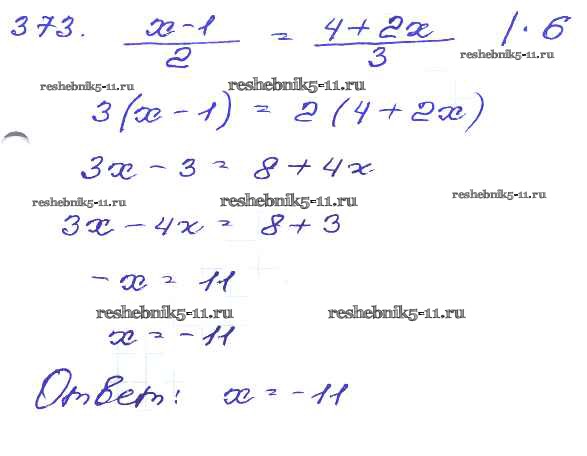 373. x-1/2 = 4+2x/3 |·6
reshebnik5-11.ru
reshebnik5-11.ru reshebnik5-11.ru
3(x-1) = 2(4+2x)
3x-3 = 8+4x
reshebnik5-11.ru reshebnik5-11.ru reshebnik5-11.ru
3x-4x = 8+3
-x = 11
reshebnik5-11.ru reshebnik5-11.ru
x = -11
Ответ: x = -11